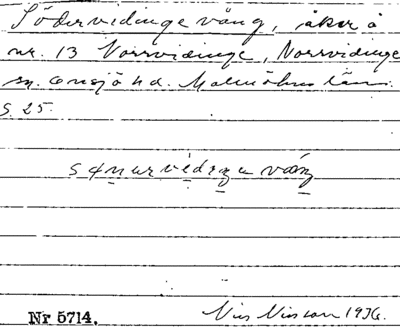 Södervidinge vång, åker å
nr. 13 Norrvidinge, Norrvidinge
sn. Onsjö hd. Malmöhus län.
S. 25.
vång
Nr 5714.
Nils Nilsson 1936.